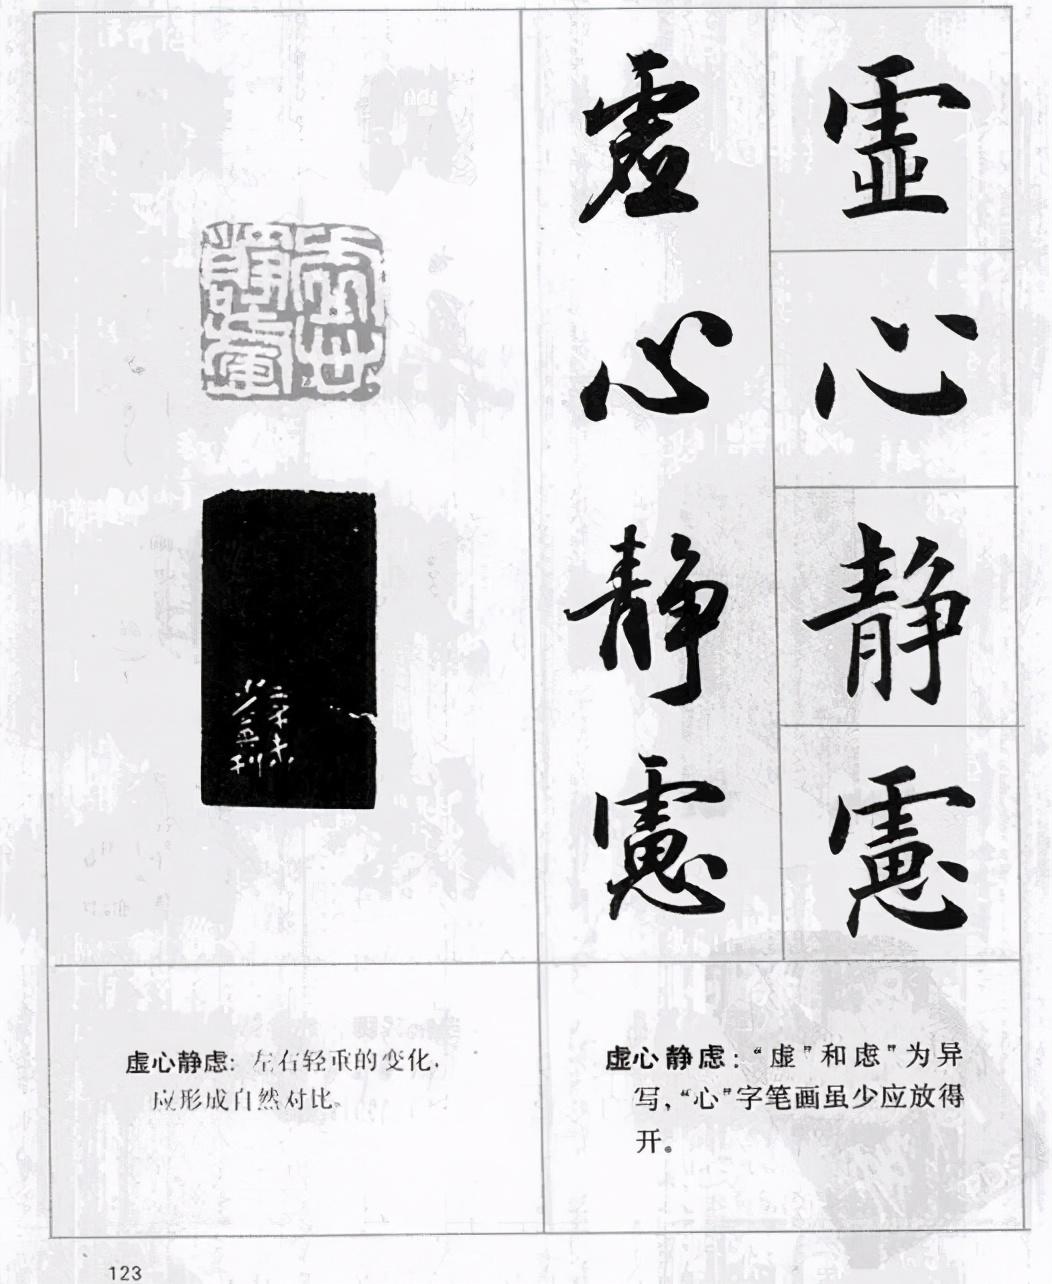 虚心静慮
虚心静慮
虚心静虑：“虚”和虑”为异
写，“心”字笔画虽少应放得
开。
虚心静虑：左右轻重的变化，
应形成自然对比。
123